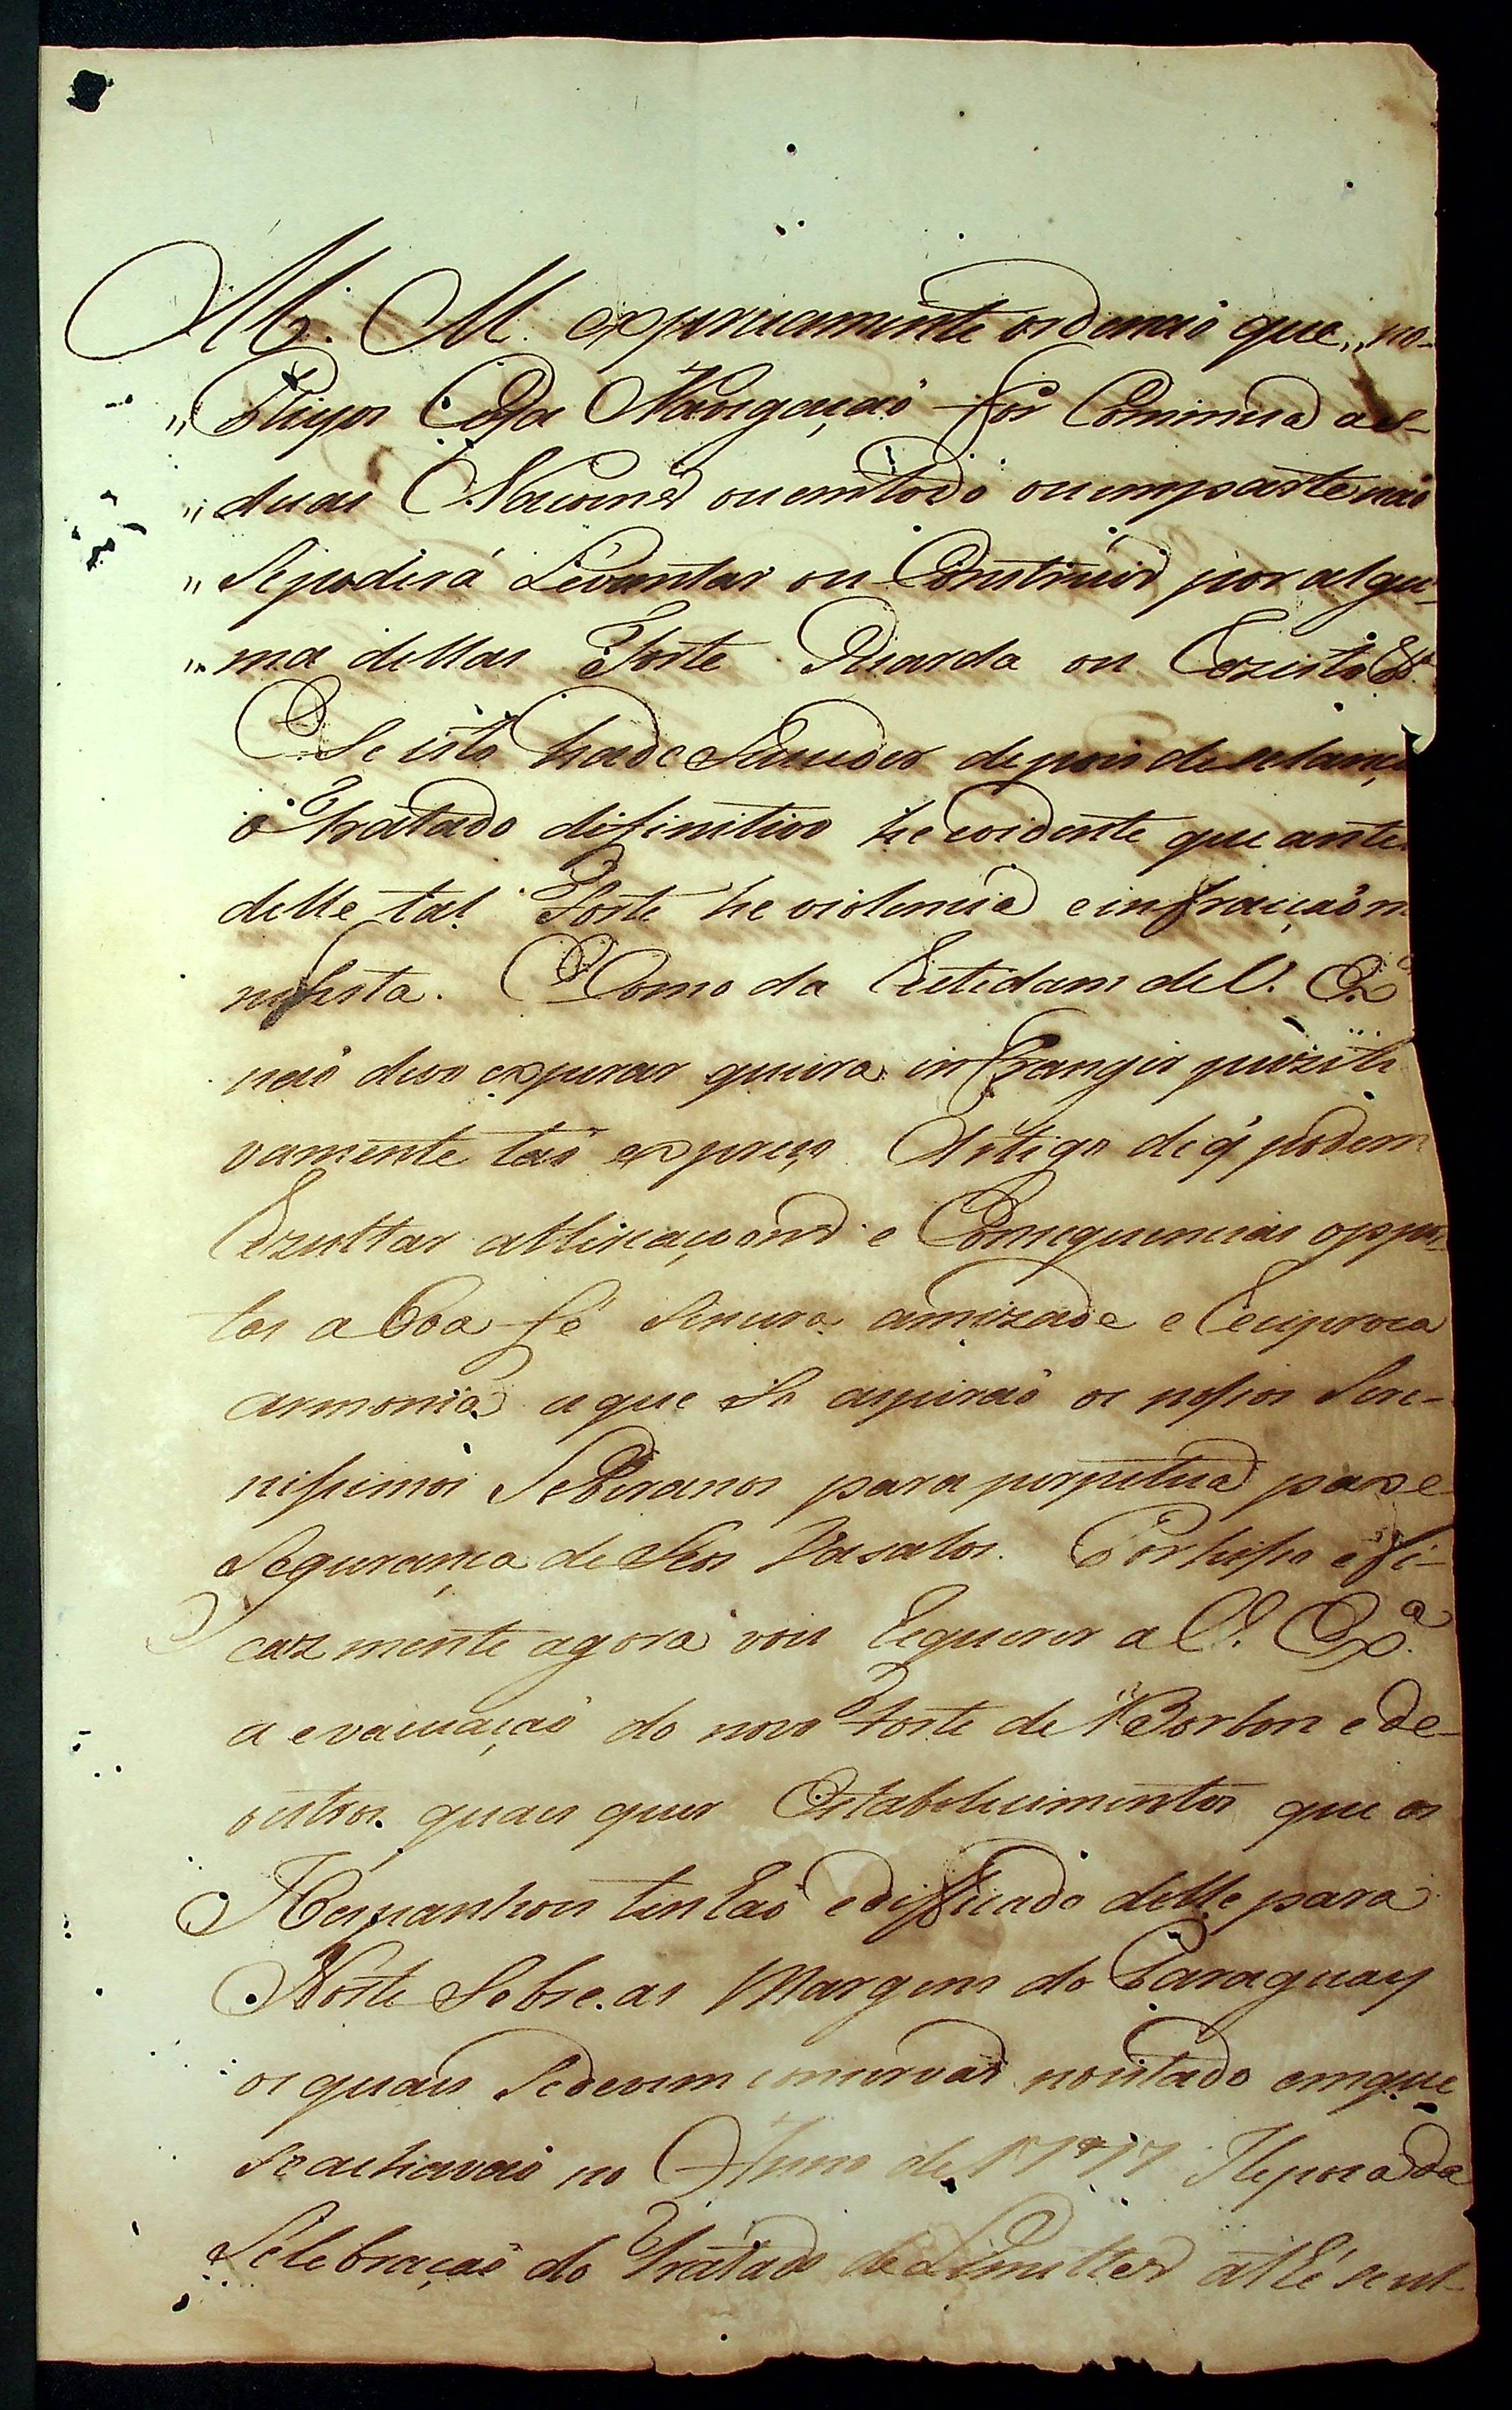 M. M. expreçamente ordenaó que,, no-
,, Citiyos Cuja Navegaçaó for Commua as-
,, duas Nacoens ou em todo ou em parte naó
,, Se poderá Levantar ou Construir por algu-
,, ma dellas Forte Guarda ou Rezisto Ea.
Se isto hade Suceder depois de se lança
o Tratado difinitivo he evidente que antes
delle tal Forte he violencia e infracçaó m
nifesta. Como da Retidam de V. Exa
naó devo esperar queira infrangir pozite
vamente taó expreço Artigo de q' podem
Rezultar altiracoens e Consequencias oppos
tas a boa fé Sincera amizade e Reciproca
armonia a que So aspiraó os nossos Sere-
nissimos Soberanos para perpetua paz e
Segurança de Seos Vasalos. Por hisso efi-
cazmente agora vou Requerer a V. Exa.
a evacuaçaó do novo Forte de Borbon e de
outros quaes quer Estabelecimentos que os
Hespanhoes tenhaó edifficado delle para
Norte Sobre as Margens do Paraguay
os quaes Se devem conservar no estado em que
Se achavaó no Anno de 1777 Hepoca da
Selebraçaó do Tratado de Limittes athé se ul-